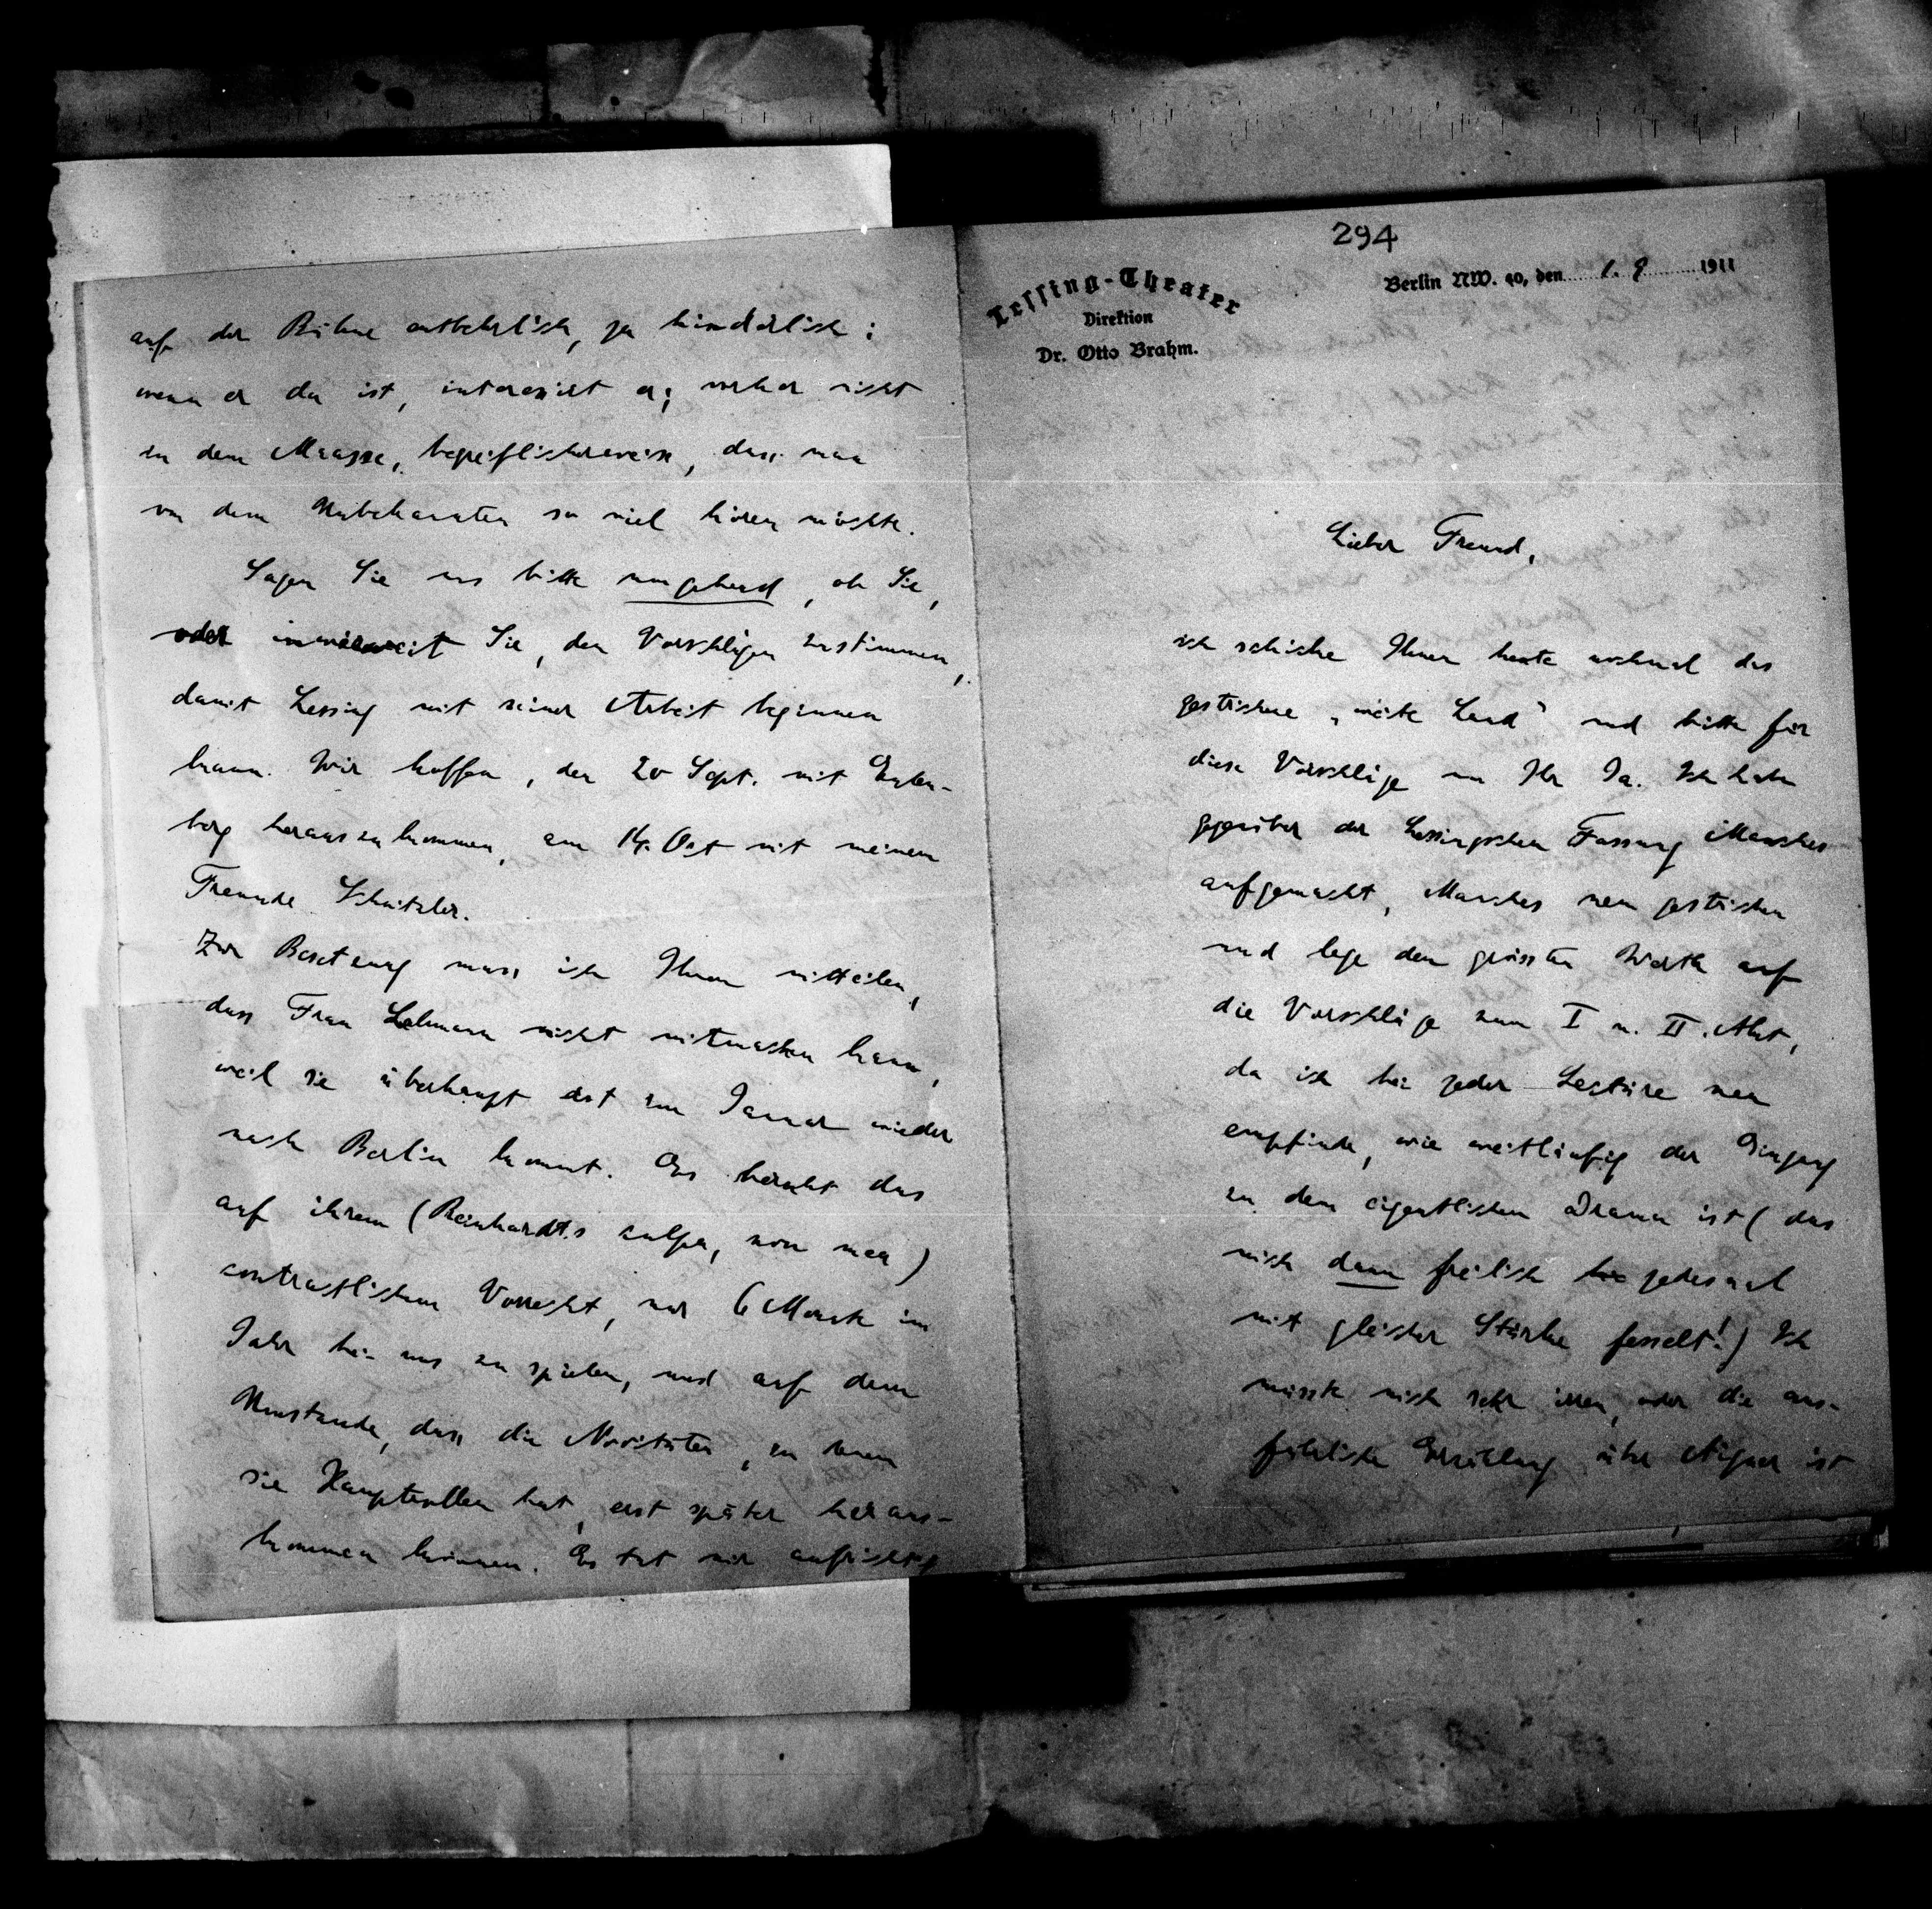 294
Lessing-Theater
Direktion
Dr. Otto Brahm.
Berlin NW. 40, den 1. 9 1911
Lieber Freund,
ich schicke Ihnen heute nochmal das
gestrichene „weite Land“ und bitte für
diese Vorschläge um Ihr Ja. Ich habe
gegenüber der Lessingschen Fassung Manches
aufgemacht, Manches neu gestrichen
und lege den grössten Werth auf
die Vorschläge zum I u. II. Akt,
da ich bei jeder Lectüre neu
empfinde, wie weitläufig der Eingang
zu dem eigentlichen Drama ist (das
mich dann freilich jedesmal
mit gleicher Stärke fesselt!) Ich
müsste mich sehr irren, oder die aus-
führliche Erzählung über Aigner ist
auf der Bühne entbehrlich, ja hinderlich:
wenn er da ist, interessirt er; vorher nicht
in dem Maasse, begreiflicherweise, dass man
von dem Unbekannten so viel hören möchte.
Sagen Sie uns bitte umgehend, ob Sie,
oder inwieweit Sie, den Vorschlägen zustimmen,
damit Lessing mit seiner Arbeit beginnen
kann. Wir hoffen, den 20 Sept. mit Eulen-
berg herauszukommen, am 14. Oct mit meinem
Freunde Schnitzler.
Zur Besetzung muss ich Ihnen mitteilen,
dass Frau Lehmann nicht mitmachen kann,
weil sie überhaupt erst im Januar wieder
nach Berlin kommt. Es beruht das
auf ihrem (Reinhardts culpa, non mea)
contractlichen Vorrecht, nur 6 Monate im
Jahr bei uns zu spielen, und auf dem
Umstande, dass die Novitäten, in denen
sie Hauptrollen hat, erst später heraus-
kommen können. Es tut mir aufrichtig